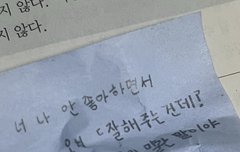 지 않나.
지 않다.
너 나 안 좋아하면서
잘해주는건데!
말란 말이야